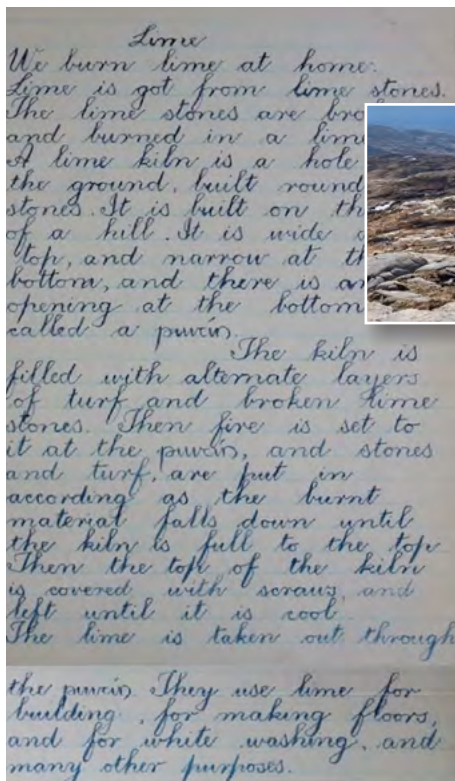 Lime
We burn lime at home.
Lime is got from lime stones.
The lime stones are bro
and burned in a lim
A lime kiln is a hole
the ground, built round
stones. It is built on th
of a hill. It is wide
top, and narrow at th
bottom, and there is an
opening at the bottom
called a
The kiln is
filled with alternate layers
of turf and broken lime
stones. Then fire is set to
it at the and stones
and turf, are put in
according as the burnt
material falls down until
the kiln is full to the top
Then the top of the kiln
is covered with scraws, and
left until it is cool.
The lime is taken out through
the They use lime for
building, for making floors,
and for white washing, and
many other purposes.